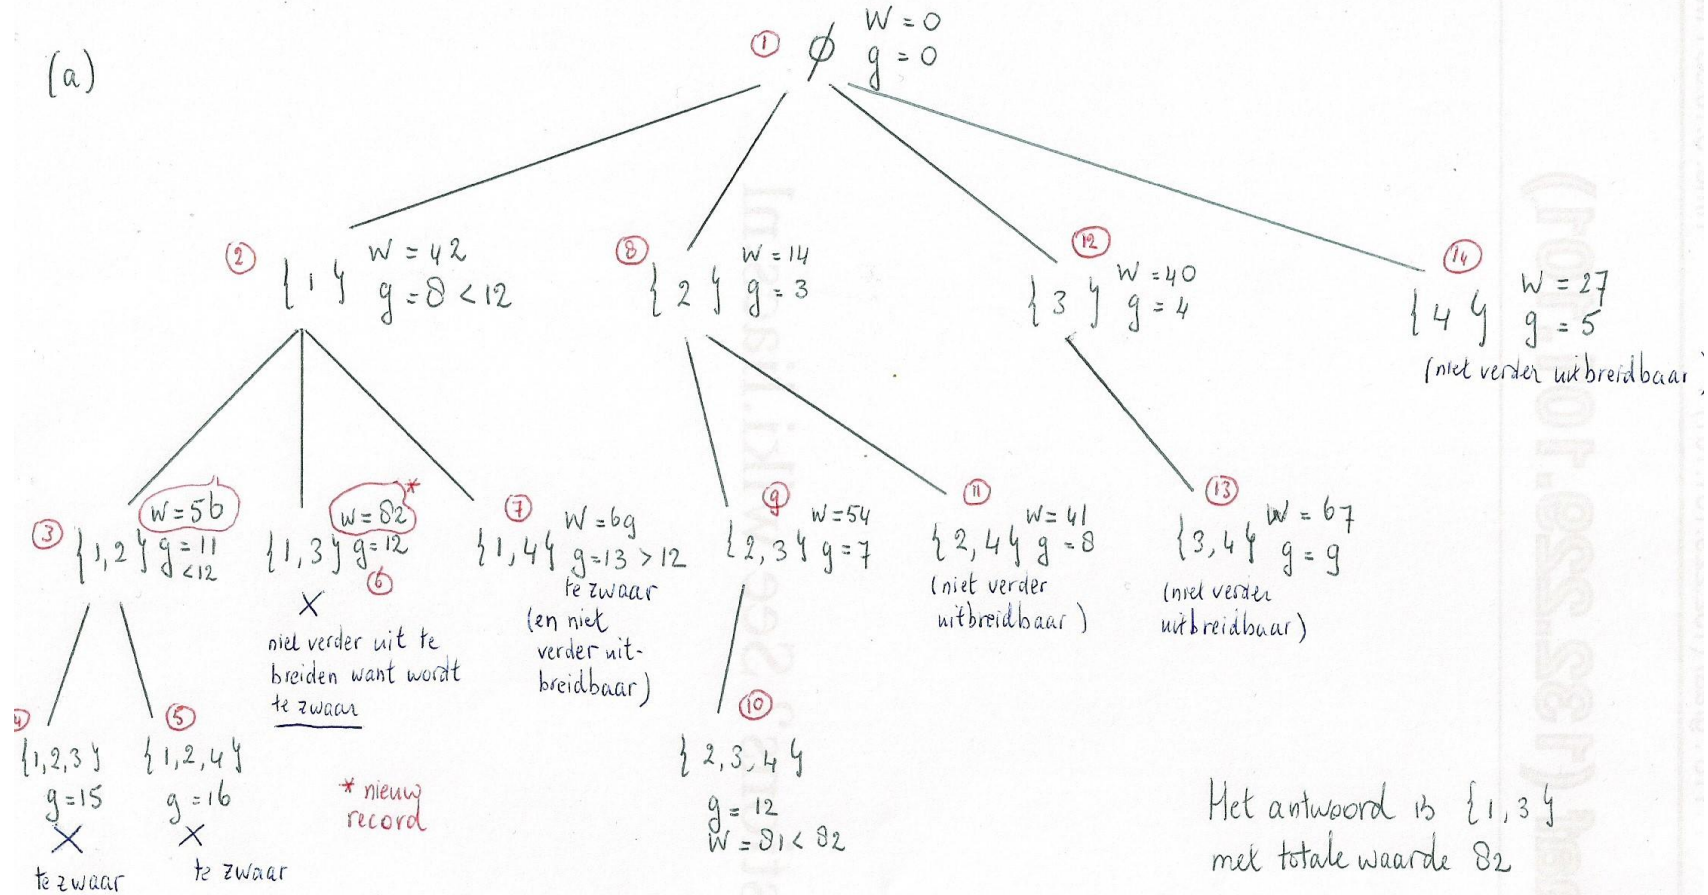 (a)
① ∅ W = 0
g = 0
② {1} W = 42
g = 8 < 12
⑧ {2} W = 14
g = 3
⑫ {3} W = 40
g = 4
⑭ {4} W = 27
g = 5
(niet verder uitbreidbaar)
③ {1,2} W = 56
g = 11
< 12
{1,3} W = 82 *
g = 12
⑥
X
niet verder uit te
breiden want wordt
te zwaar
⑦ {1,4} W = 69
g = 13 > 12
te zwaar
(en niet
verder uit-
breidbaar)
⑨ {2,3} W = 54
g = 7
⑪ {2,4} W = 41
g = 8
(niet verder
uitbreidbaar)
⑬ {3,4} W = 67
g = 9
(niet verder
uitbreidbaar)
④ {1,2,3}
g = 15
X
te zwaar
⑤ {1,2,4}
g = 16
X
te zwaar
* nieuw
record
⑩
{2,3,4}
g = 12
W = 81 < 82
Het antwoord is {1,3}
met totale waarde 82